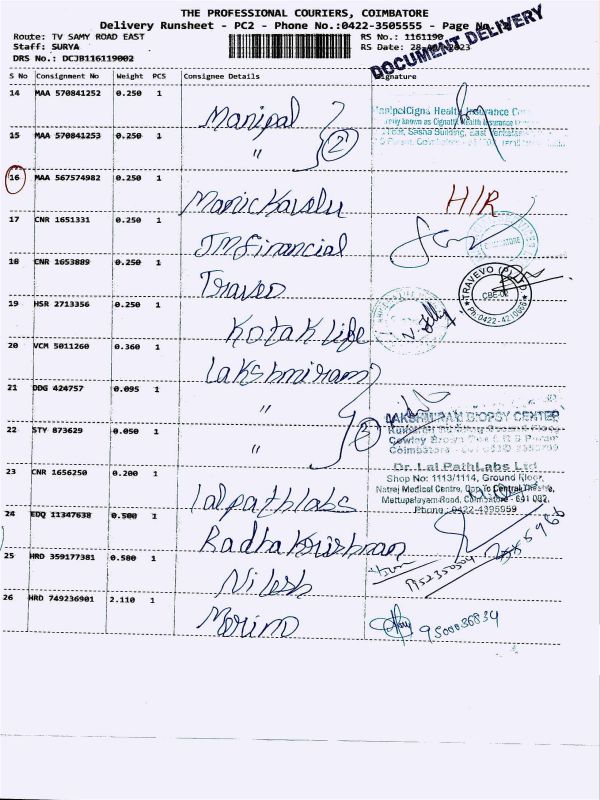 THE PROFESSIONAL COURIERS, COIMBATORE
Delivery Runsheet - PC2 - Phone No.:0422-3505555 - Page No.
Route: TV SAMY ROAD EAST
RS No.: 1161190
Staff: SURYA
RS Date: 28- 2023
DRS No.: DCJB116119002
DOCUMENT DELIVERY
S No Consignment No Weight PCS Consignee Details Signature
14 MAA 570841252 0.250 1 Manipal
ManipalCigna Health Insurance
15 MAA 570841253 0.250 1 " 2
16 MAA 567574982 0.250 1 H/R
17 CNR 1651331 0.250 1 JM Financial
18 CNR 1653889 0.250 1 Traveo
TRAVEVO (P) LTD
CBE-02
Ph:0422-4210965
19 HSR 2713356 0.250 1 Kotak life
20 VCM 5011260 0.360 1 Lakshmiram
21 DDG 424757 0.095 1 "
22 STY 873629 0.050 1 " 3
LAKSHMIRAM BIOPSY CENTER
Cowley Brown Road R S Puram
Coimbatore
23 CNR 1656250 0.200 1 Lalpathlabs
Dr. Lal PathLabs Ltd
Shop No: 1113/1114, Ground Floor,
Natraj Medical Centre, Opp To Central Theatre,
Mettupalayam Road, Coimbatore - 641 002.
Phone: 0422-4395959
24 EDQ 11347638 0.500 1 Radhakrishnan
25 HRD 359177381 0.580 1 Nilesh
26 HRD 749236901 2.110 1 Merino
9500036834